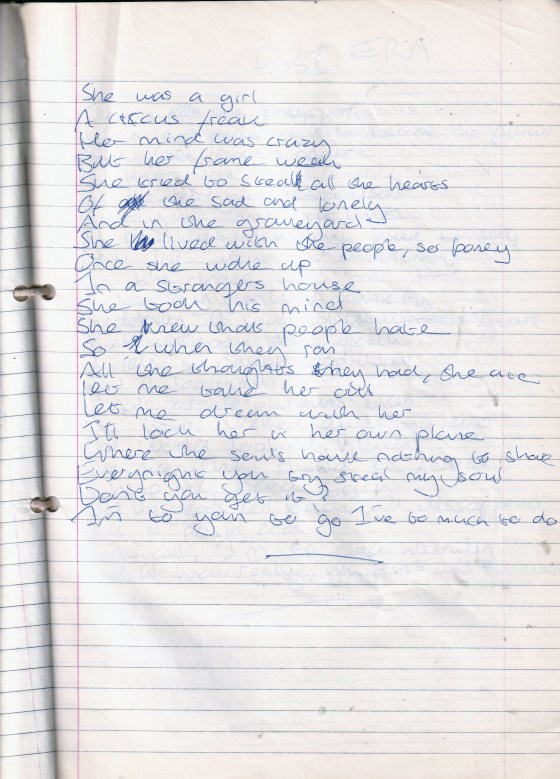 She was a girl
A circus freak
Her mind was crazy
But her frame weak
She tried to steal all the hearts
Of the sad and lonely
And in the graveyard
She lived with the people, so boney
Once she woke up
In a strangers house
She took his mind
She knew that people hate
So when they ran
All the thoughts they had, she ate
Let me take her out
Let me dream with her
I'll lock her in her own plane
Where the souls have nothing to share
Everynight you try steal my soul
Don't you get it?
I'm to to go I've to much to do